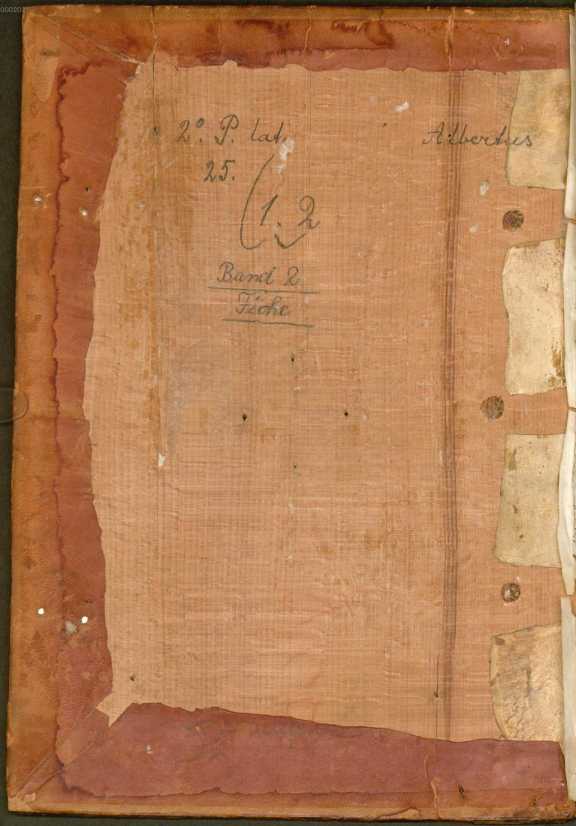 2° P. lat. Albertus
25.
(1. 2
Band 2